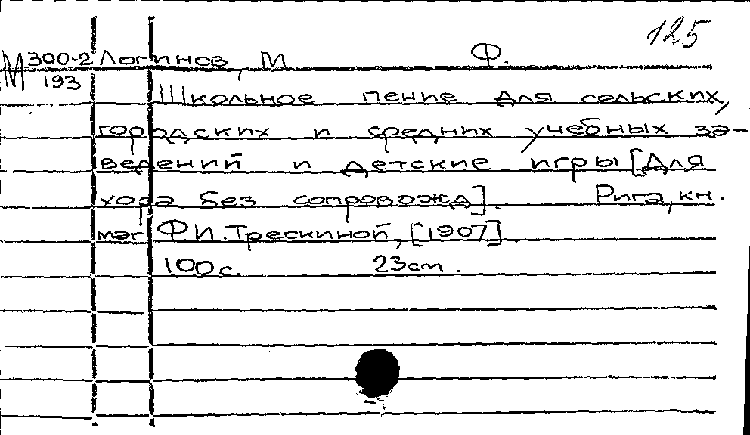 125
М 300-2 Логинов, М Ф.
193
Школьное пение для сельских,
городских и средних учебных за-
ведений и детские игры [Для
хора без сопровожд]. Рига, кн.
маг Ф И. Трескиной, [1907]
100с. 23см.